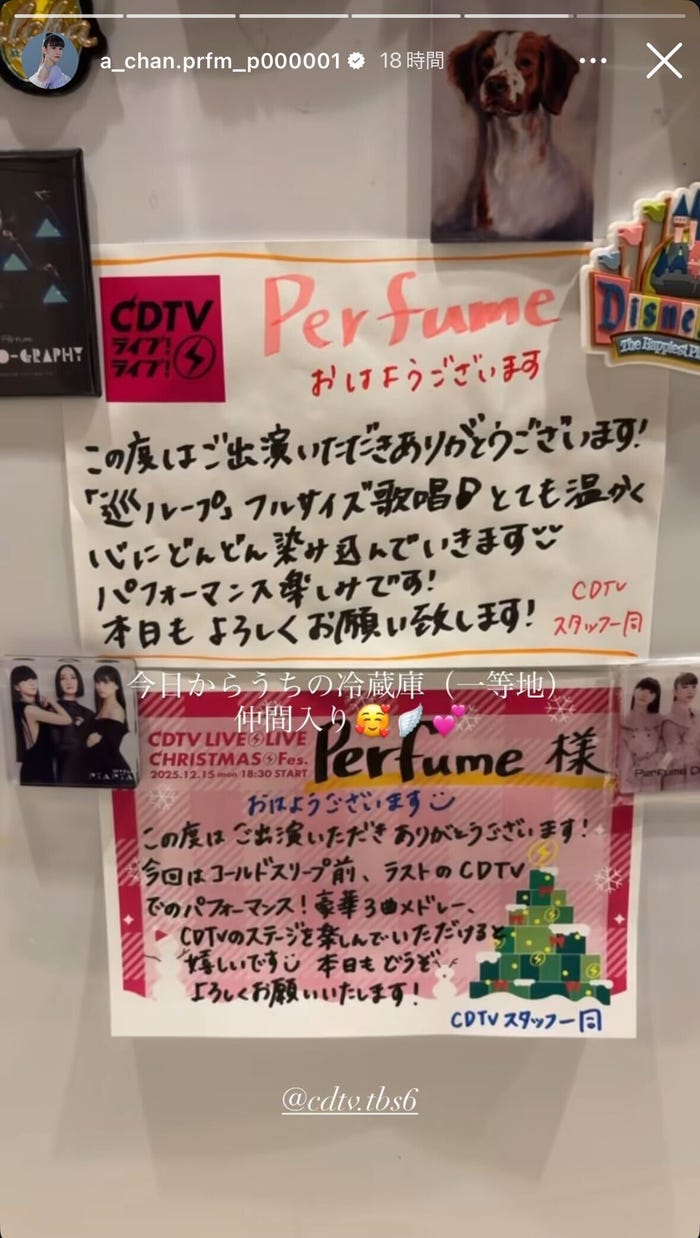 a_chan.prfm_p000001 18時間
CDTV
ライブ!
ライブ!
Perfume
おはようございます
Disne
The Happiest Pl
Perfume
O-GRAPHY
この度はご出演いただきありがとうございます!
「巡ループ」フルサイズ歌唱 とても温かく
心にどんどん染み込んでいきます
パフォーマンス楽しみです!
本日も よろしくお願い致します!
CDTV
スタッフ一同
今日からうちの冷蔵庫（一等地）
仲間入り🥰🪽💕
CDTV LIVE LIVE
CHRISTMAS Fes.
2025.12.15 mon 18:30 START
Perfume 様
おはようございます
この度は ご出演いただき ありがとうございます!
今回は コールドスリープ前、ラストのCDTV
でのパフォーマンス! 豪華3曲メドレー、
CDTVのステージを楽しんでいただけると
嬉しいです 本日も どうぞ
よろしくお願いいたします!
CDTV スタッフ一同
@cdtv.tbs6